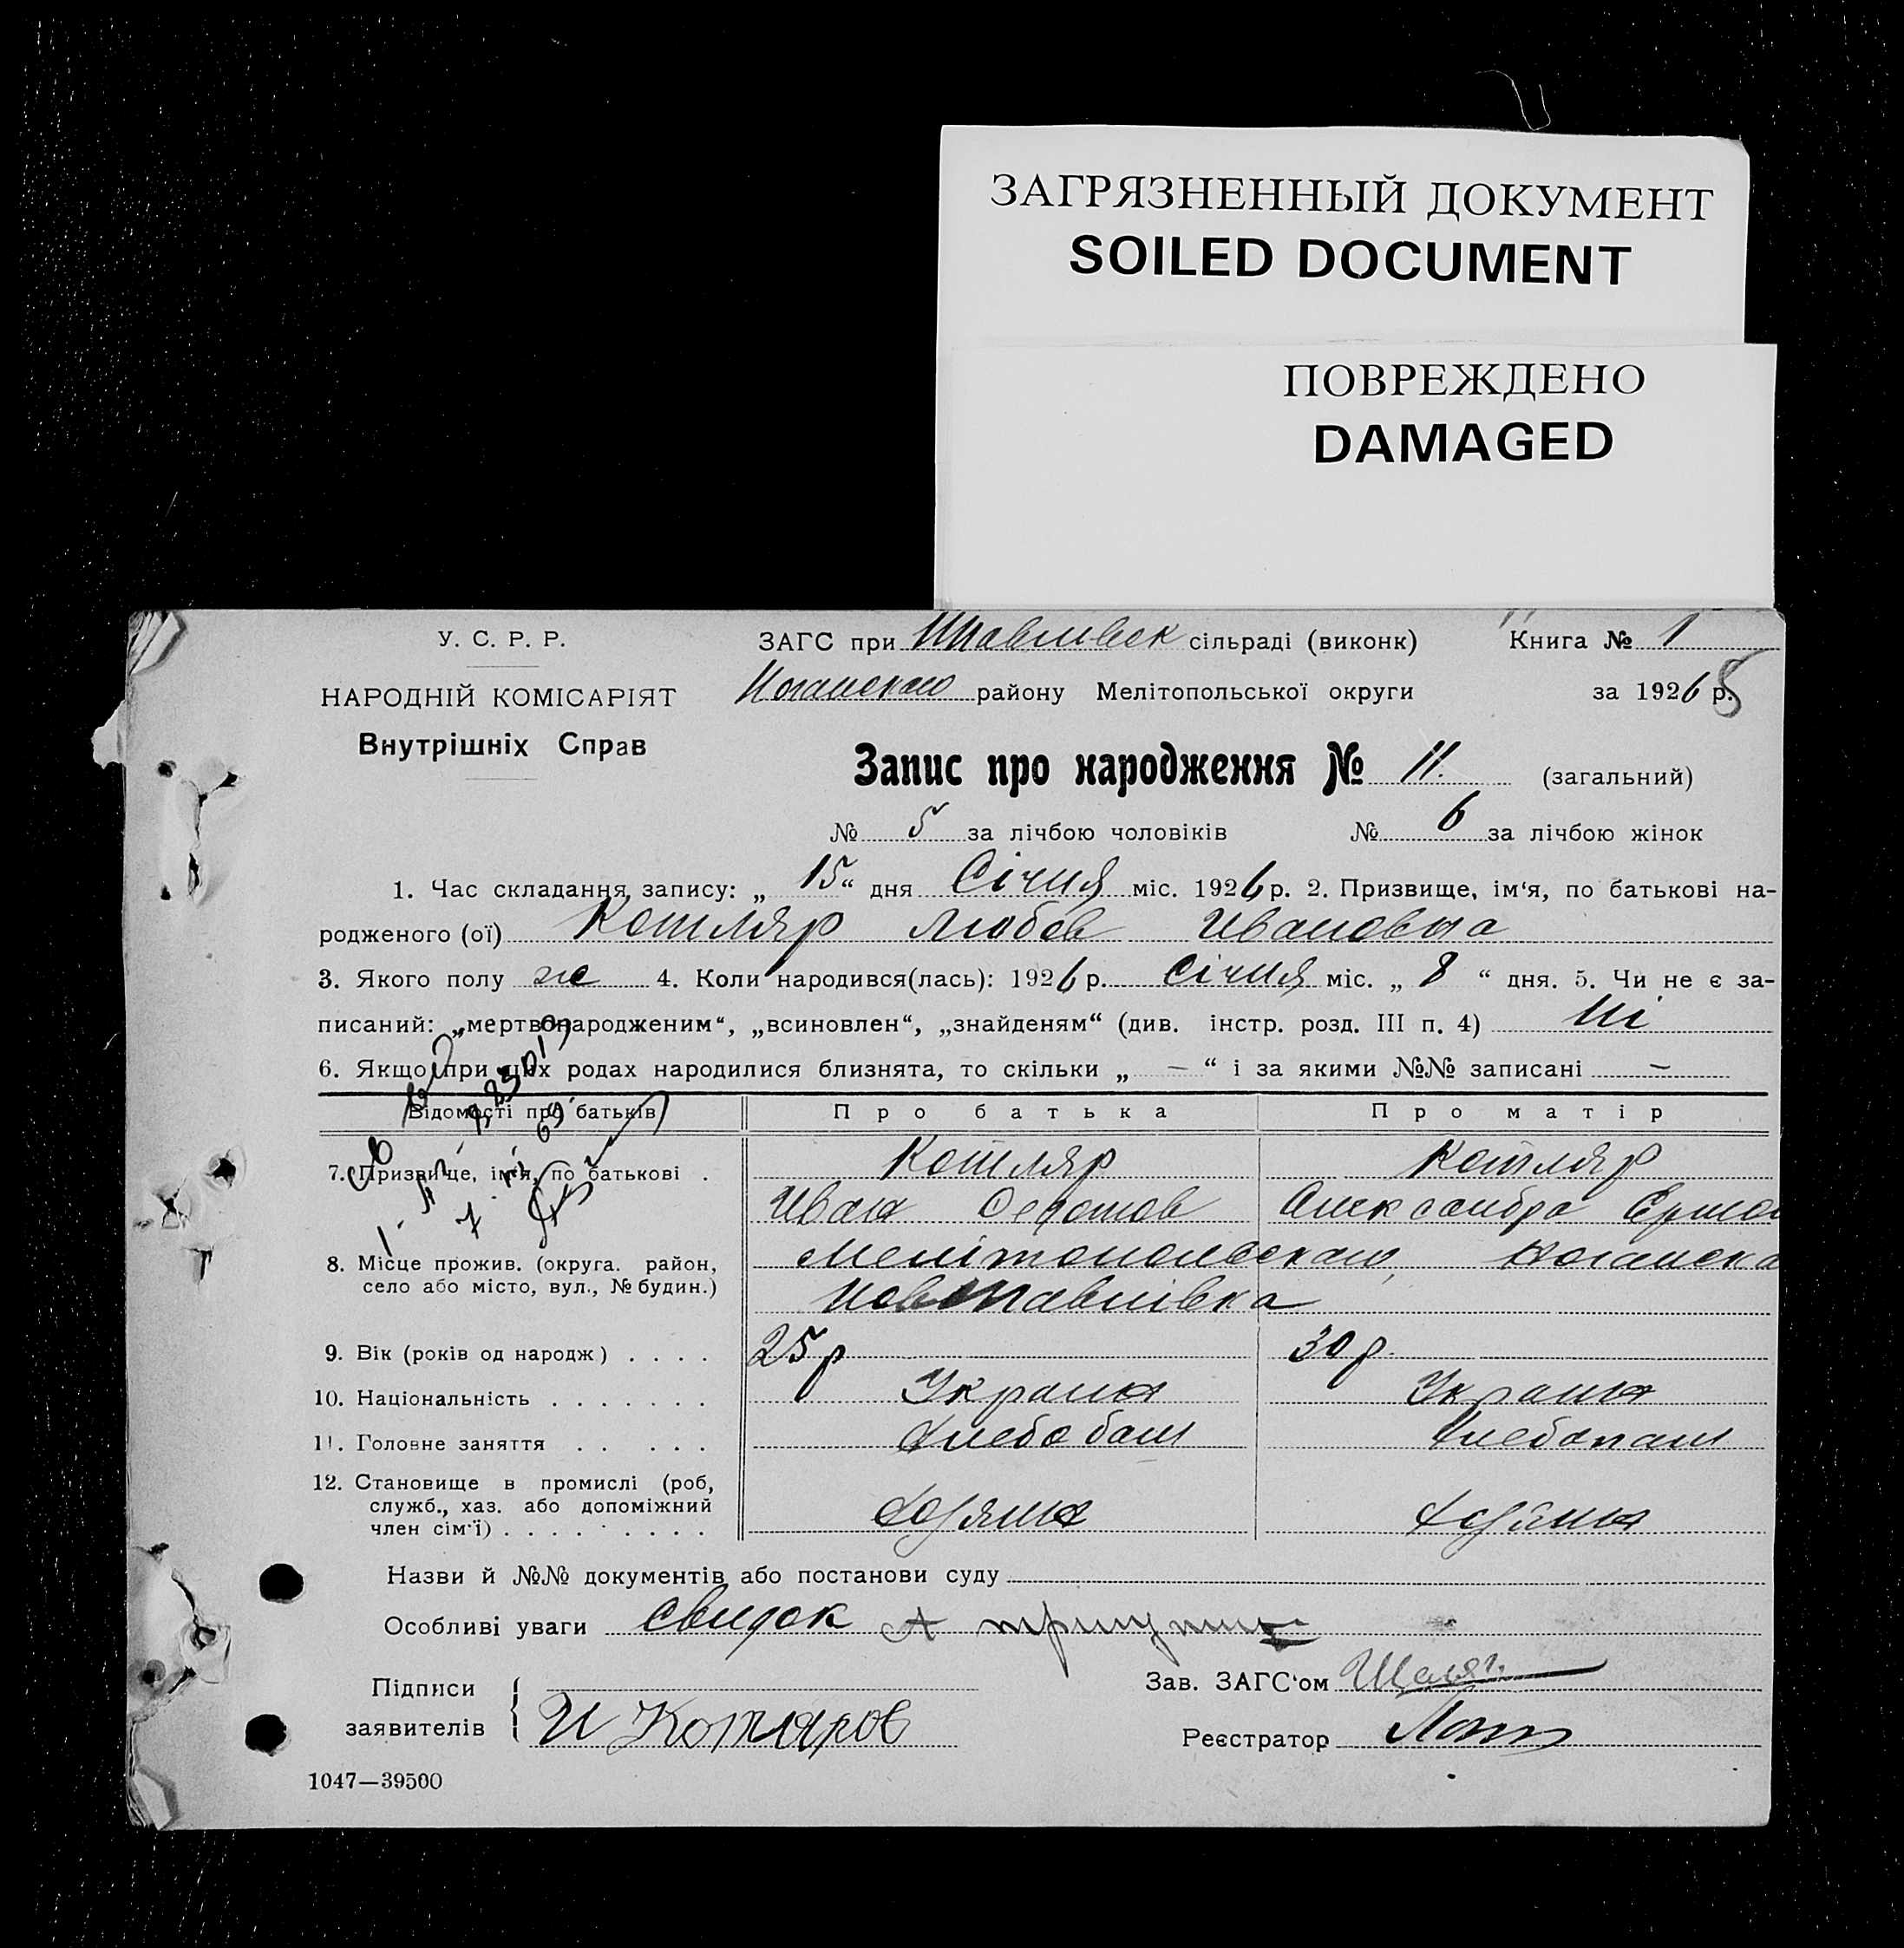 ЗАГРЯЗНЕННЫЙ ДОКУМЕНТ
SOILED DOCUMENT
ПОВРЕЖДЕНО
DAMAGED
У. С. Р. Р.
НАРОДНІЙ КОМІСАРІЯТ
Внутрішніх Справ
ЗАГС при сільраді (виконк) Книга № 1
району Мелітопольської округи за 1926 р.
Запис про народження № 11. (загальний)
№ 5 за лічбою чоловіків № 6 за лічбою жінок
1. Час складання запису: „ 15 “ дня Січня міс. 1926 р. 2. Призвище, ім‘я, по батькові на-
родженого (ої) Котляр Любов Ивановна
3. Якого полу же 4. Коли народився(лась): 1926 р. Січня міс. „ 8 “ дня. 5. Чи не є за-
писаний: „мертвонародженим“, „всиновлен“, „знайденям“ (див. інстр. розд. III п. 4) Ні
6. Якщо при цих родах народилися близнята, то скільки „ — “ і за якими №№ записані —
Відомості про батьків Про батька Про матір
7. Призвище, ім‘я, по батькові . Котляр Котляр
Иван Федотов Александра
8. Місце прожив. (округа. район,
село або місто, вул., № будин.)
9. Вік (років од народж) . . . . 25 р 30 р.
10. Національність . . . . . . . Украин Украин
11. Головне заняття . . . . . Хлебопаш
12. Становище в промислі (роб,
служб., хаз. або допоміжний
член сім‘ї) . . . . . . . . .
Назви й №№ документів або постанови суду
Особливі уваги
Підписи
заявителів И Котляров
Зав. ЗАГС‘ом
Реєстратор
1047—39500